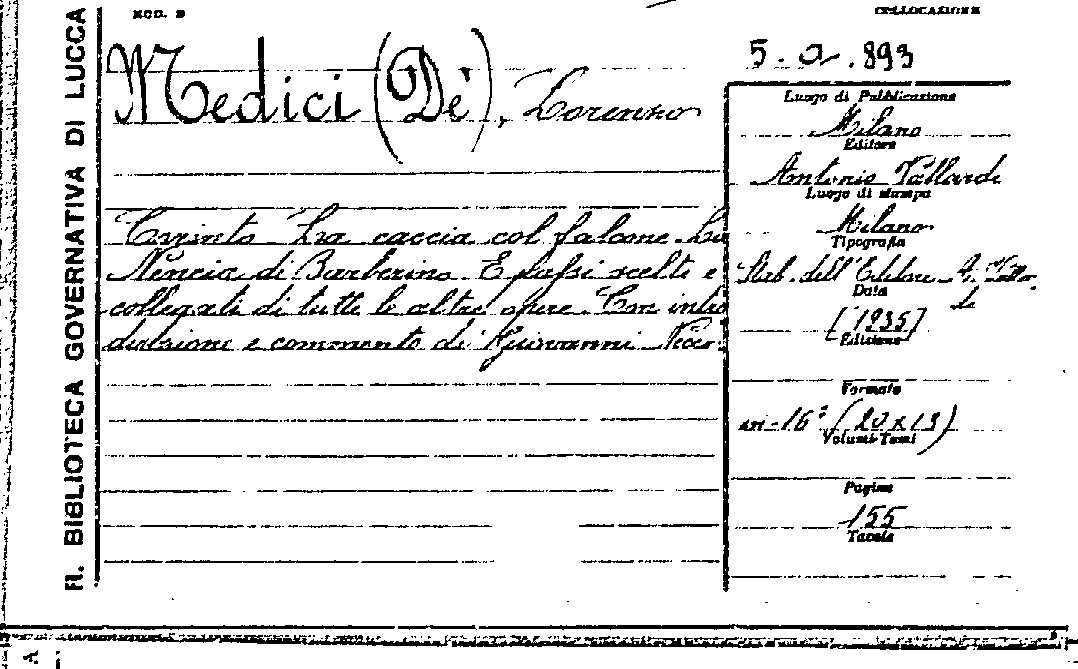 MOD. B
COLLOCAZIONE
R. BIBLIOTECA GOVERNATIVA DI LUCCA
5. a. 893
Medici (De'), Lorenzo
Corinto La caccia col falcone La
Nencia di Barberino E passi scelti e
collegati di tutte le altre opere. Con intro
duzione e commento di Giovanni
Luogo di Pubblicazione
Milano
Editore
Antonio Vallardi
Luogo di stampa
Milano
Tipografia
Stab. dell'Editore A. Vallar
di
Data
[1935]
Edizione
Formato
in-16° (20x13)
Volumi-Tomi
Pagine
155
Tavole
A